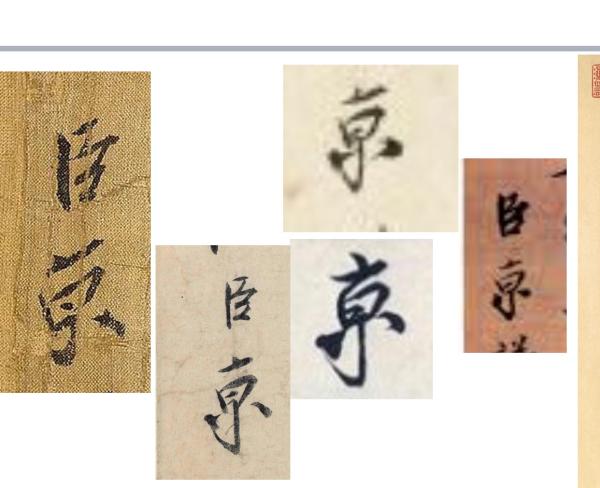 臣京
臣京
京
京
臣京謹